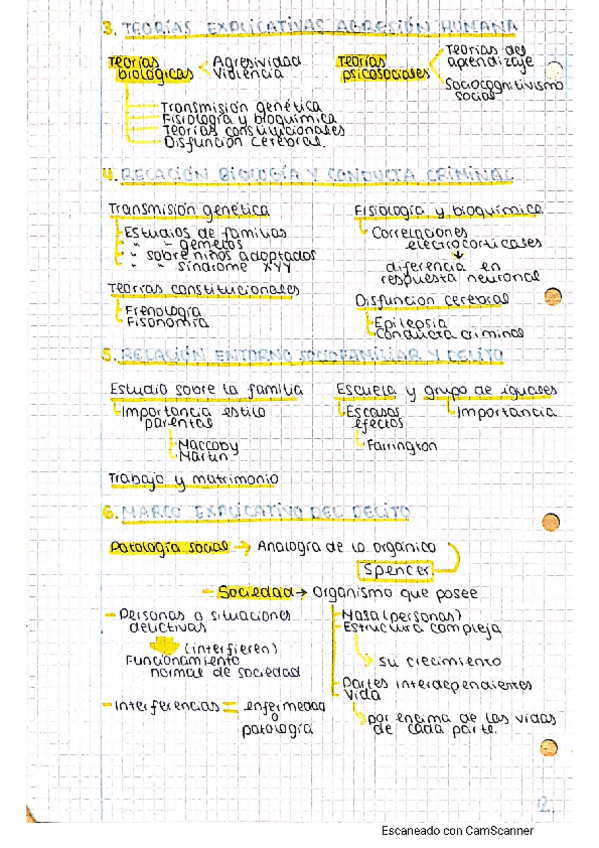 3. TEORÍAS EXPLICATIVAS AGRESIÓN HUMANA
Teorías biológicas
Agresividad
Violencia
Transmisión genética
Fisiología y bioquímica
Teorías constitucionales
Disfunción cerebral.
Teorías psicosociales
Teorías del aprendizaje
Sociocognitivismo social
4. RELACIÓN BIOLOGÍA Y CONDUCTA CRIMINAL
Transmisión genética
Estudios de familias
" " gemelos
" sobre niños adoptados
" " síndrome XYY
Teorías constitucionales
Frenología
Fisonomía
Fisiología y bioquímica
Correlaciones
electrocorticales
↓
diferencia en
respuesta neuronal
Disfunción cerebral
Epilepsia
Conducta criminal
5. RELACIÓN ENTORNO SOCIOFAMILIAR Y DELITO
Estudio sobre la familia
Importancia estilo
parental
Maccoby
Martin
Trabajo y matrimonio
Escuela y grupo de iguales
Escasos
efectos
Farrington
Importancia
6. MARCO EXPLICATIVO DEL DELITO
Patología social → Analogía de lo orgánico
Spencer
- Sociedad → Organismo que posee
- Personas o situaciones
delictivas
(interfieren)
Funcionamiento
normal de sociedad
- Interferencias = enfermedad
o
patología
Masa (personas)
Estructura compleja
su crecimiento
Partes interdependientes
Vida
por encima de las vidas
de cada parte.
2
Escaneado con CamScanner